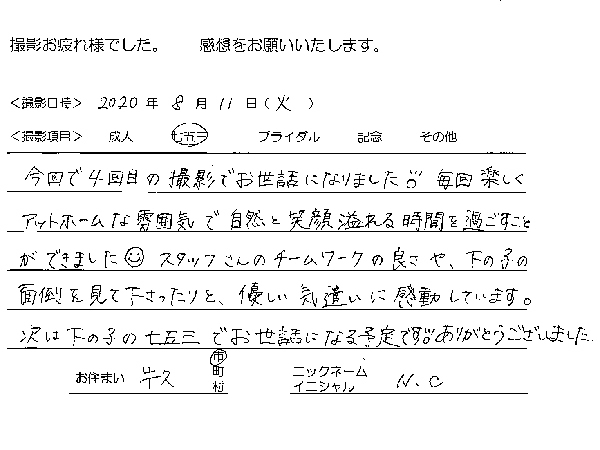 撮影お疲れ様でした。　感想をお願いいたします。
＜撮影日時＞ 2020 年 8 月 11 日（火）
＜撮影項目＞ 成人 七五三 ブライダル 記念 その他
今回で4回目の撮影でお世話になりました 毎回楽しく
アットホームな雰囲気で自然と笑顔溢れる時間を過ごすこと
ができました☺ スタッフさんのチームワークの良さや、下の子の
面倒を見て下さったりと、優しい気遣いに感動しています。
次は下の子の七五三でお世話になる予定です ありがとうございました
お住まい 市 町 村
ニックネーム イニシャル N.C